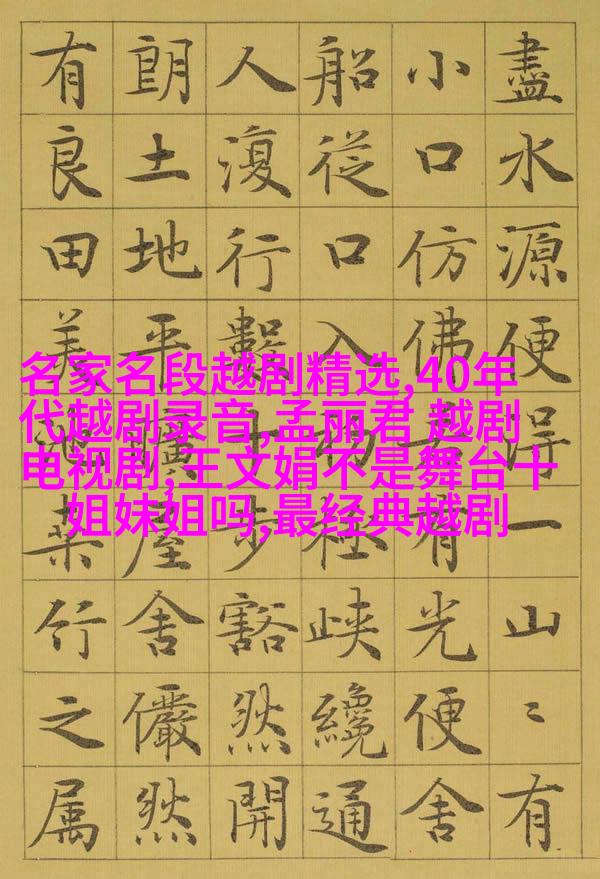 盡水源便得一山〻有
小口仿佛若有光便舍
船從口入初極峽纔通
人復行數十步豁然開
朗土地平曠屋舍儼然
有良田美池桑竹之属
名家名段越剧精选,40年
代越剧录音,孟丽君 越剧
电视剧,王文娟不是舞台十
姐妹姐吗,最经典越剧